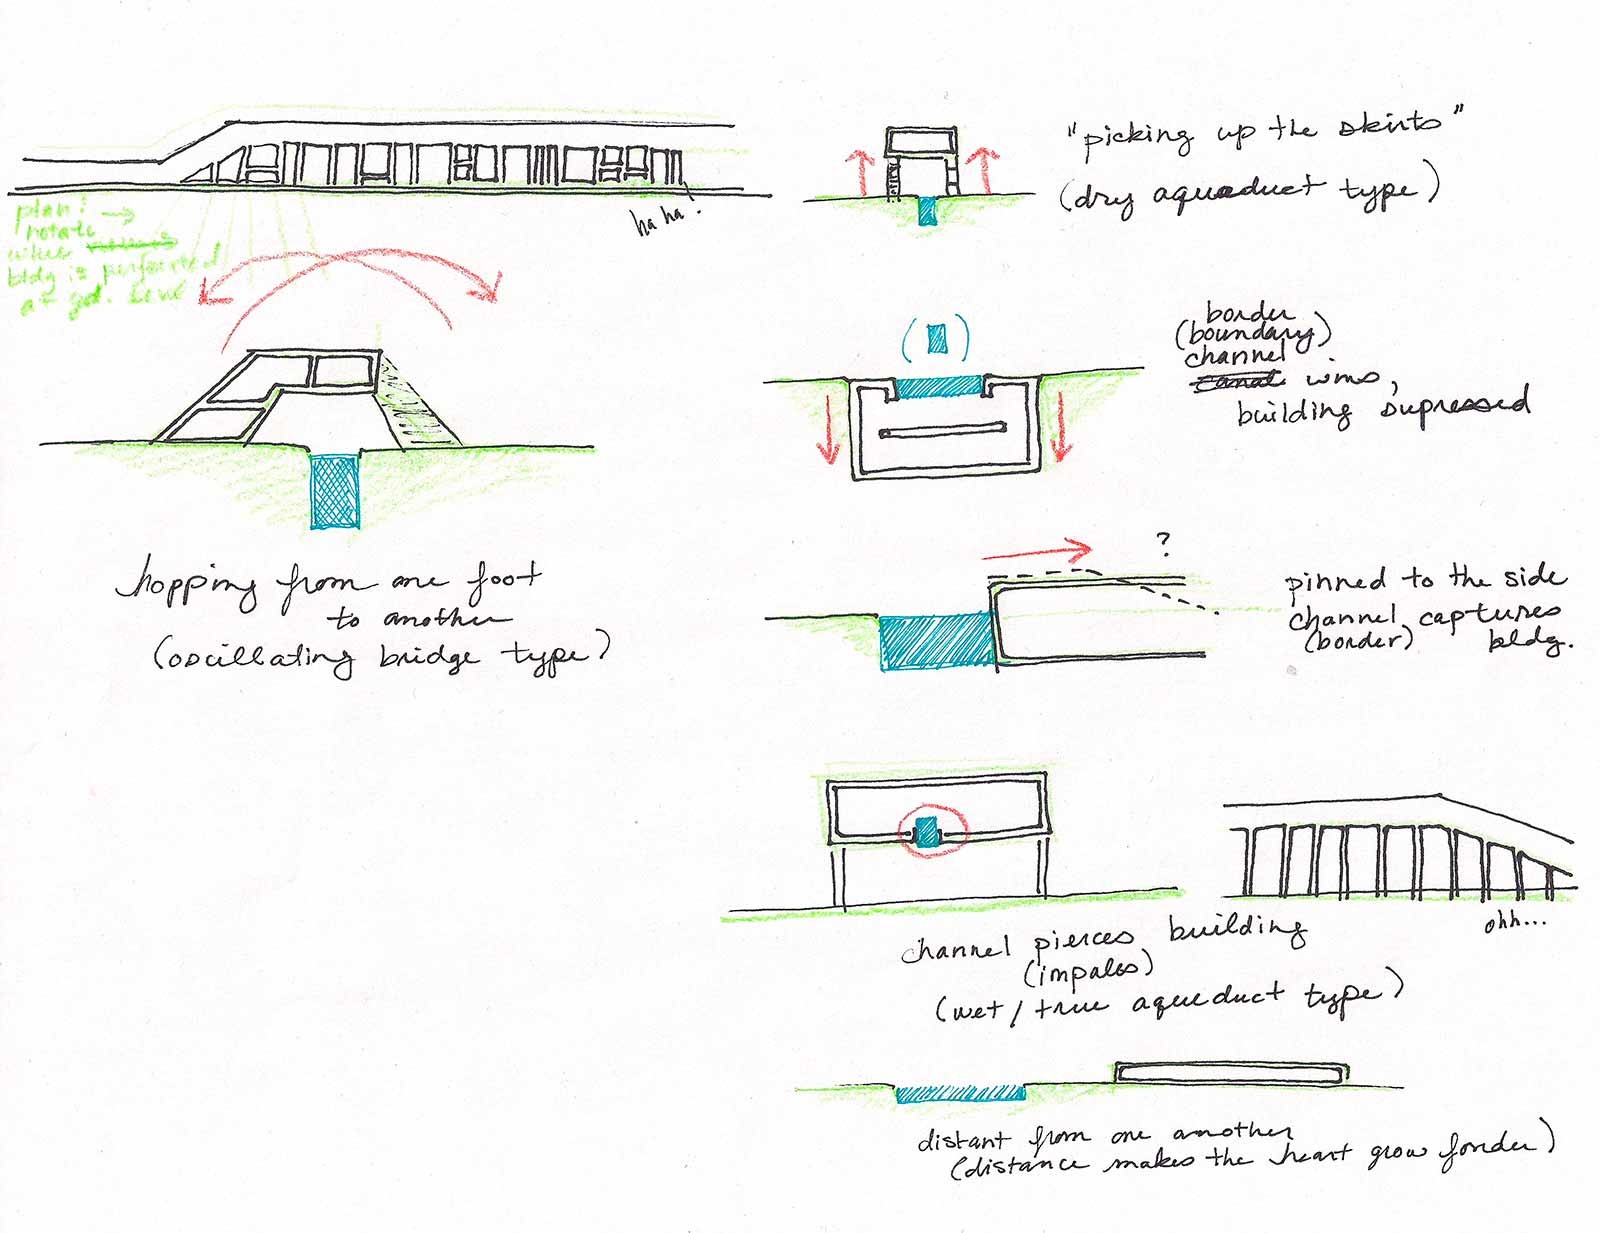 plan: →
rotate
when
bldg is perforated
at gd. level
ha ha!
hopping from one foot
to another
(oscillating bridge type)
"picking up the skirts"
(dry aqueduct type)
border
(boundary)
channel
canal wins,
building supressed
?
pinned to the side
channel captures
(border) bldg.
channel pierces building
(impales)
(wet/true aqueduct type)
ohh...
distant from one another
(distance makes the heart grow fonder)